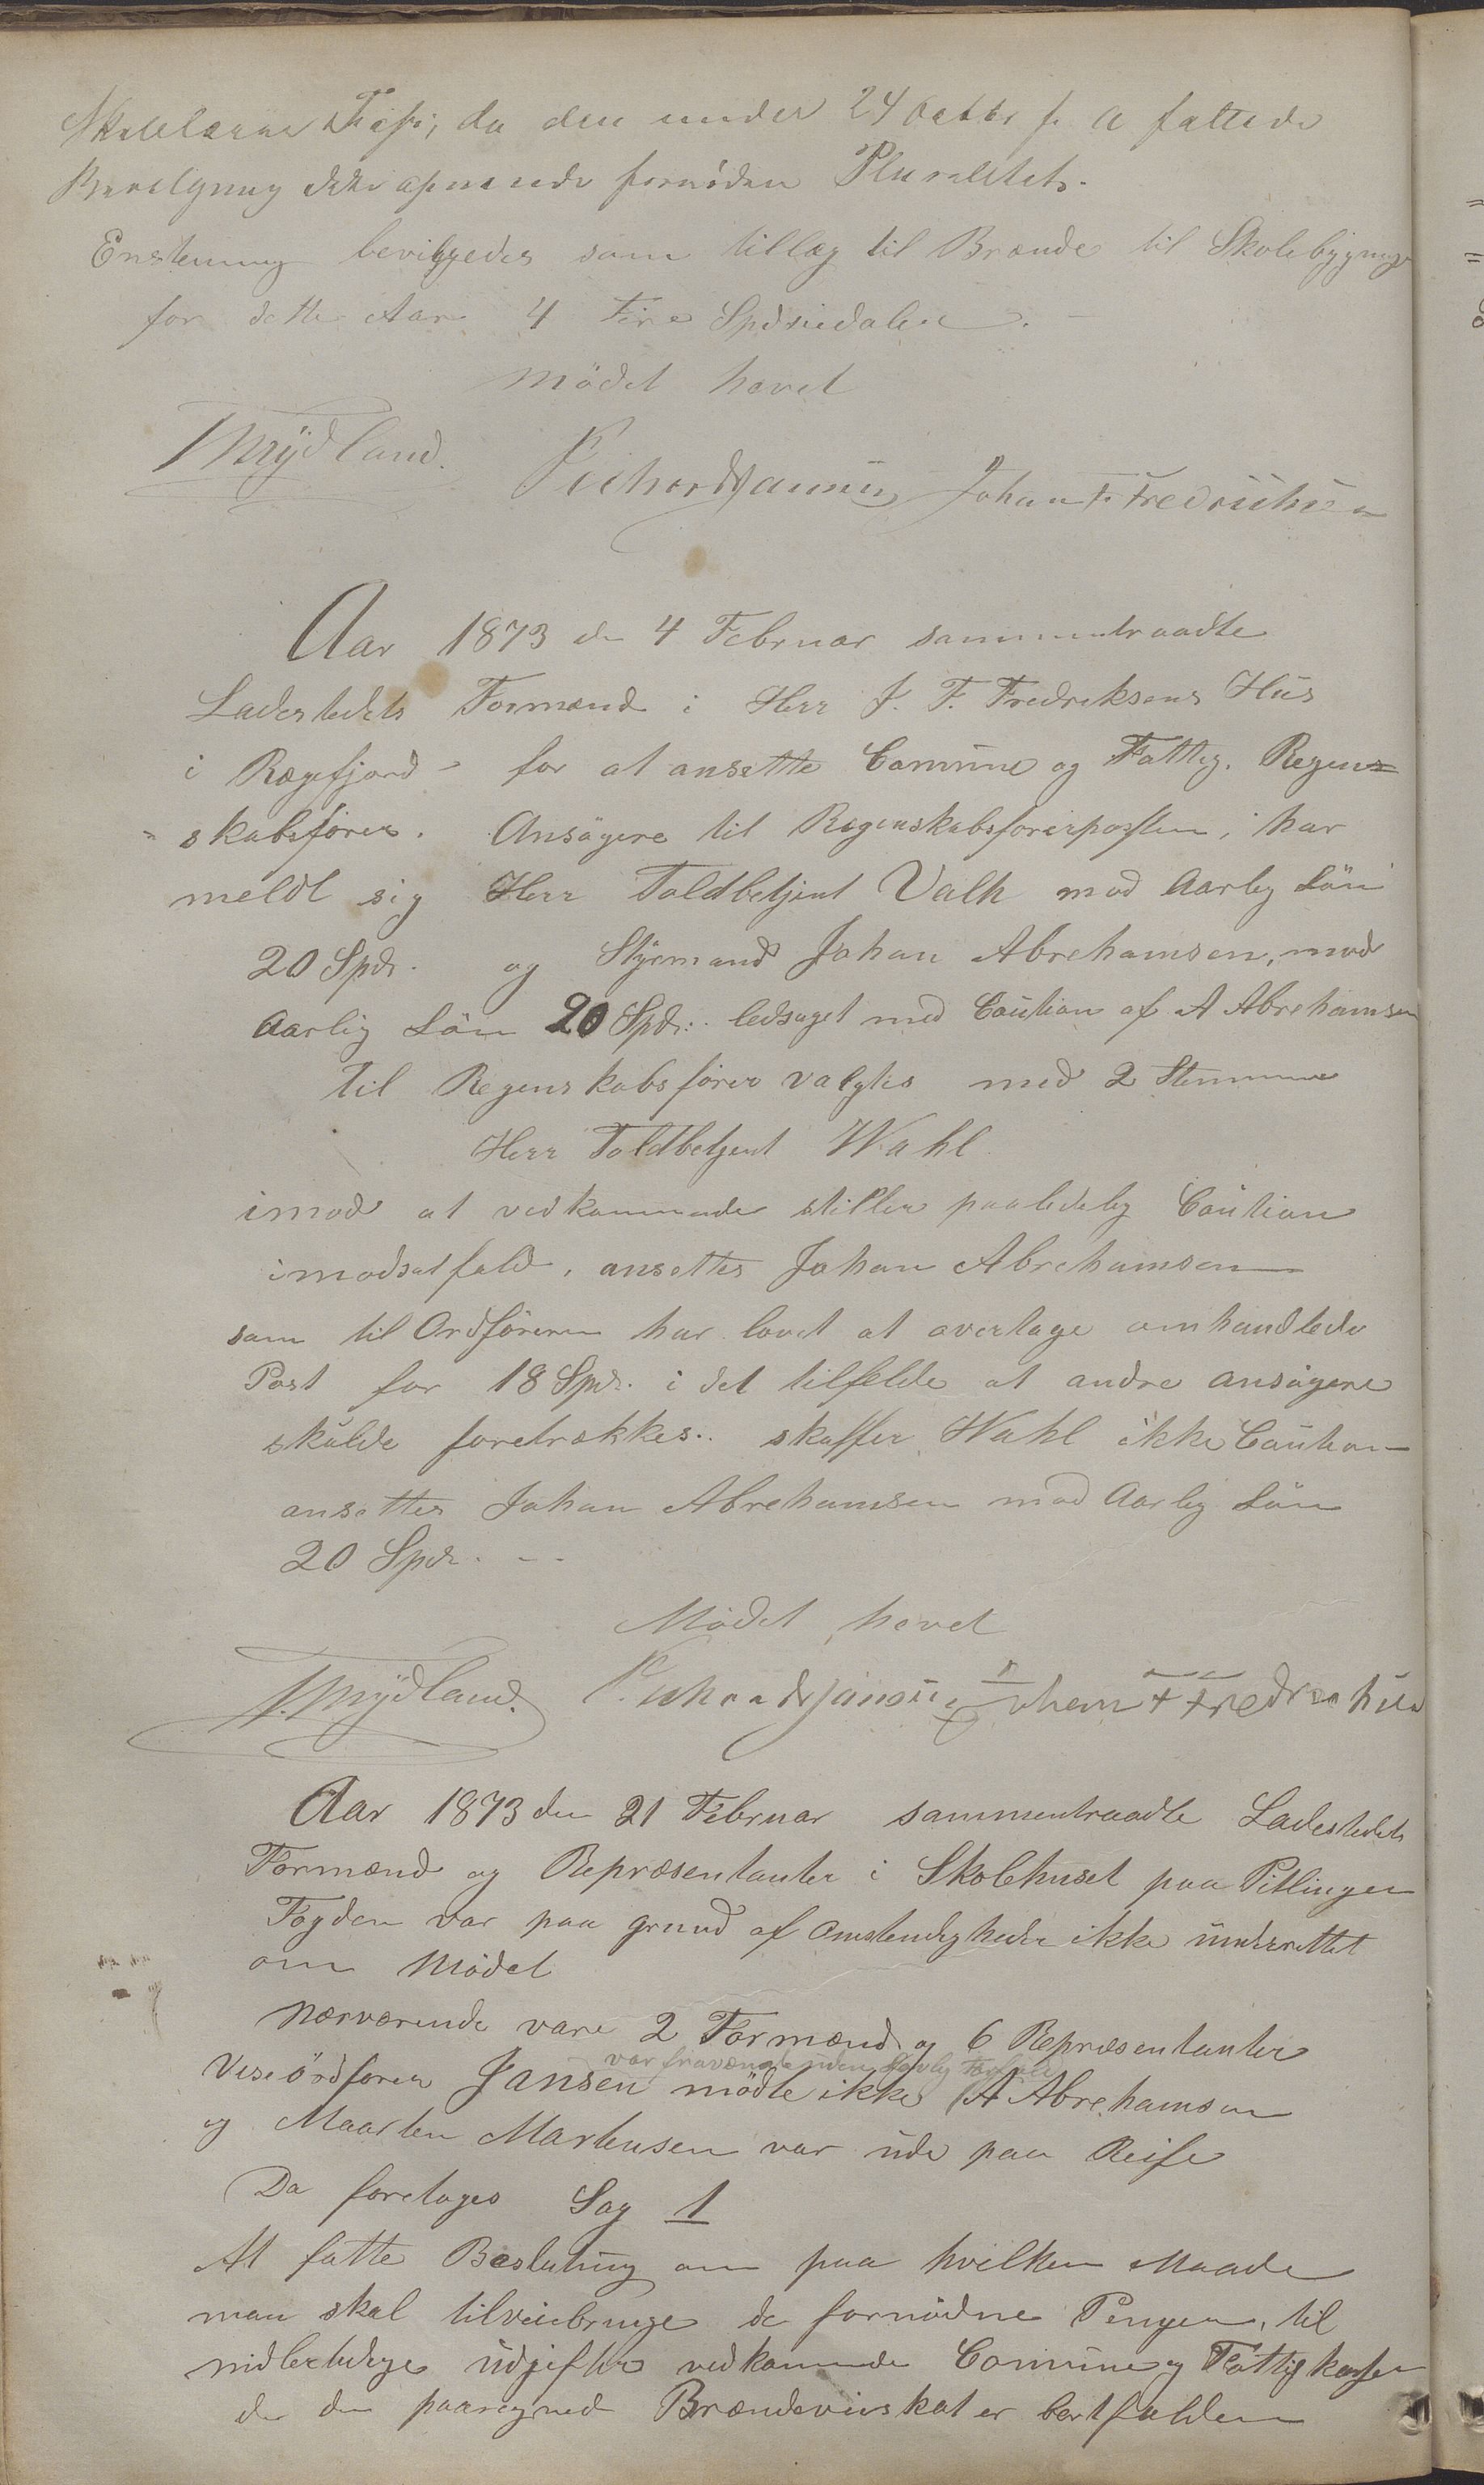 da den under 24 Octbr f. A fattede
ikke fornöden Pluralitet.
Enstemmig bevilgedes som tillæg til Brænde til Skolebygning
for dette Aar 4 Fire Spdsiedaler.
Mödet hævet
Mydland. Richard Jansen Johan F Fredriksen
Aar 1873 den 4 Februar sammentraadte
Ladestedets Formænd i Herr J. F. Fredreksens Hus
i Rægefjord for at ansætte Comüne og Fattig. Regen=
skabsförer. Ansögere til Regenskabsförerposten, har
meldt sig Herr Toldbetjent Valh mod Aarlig Lön
20 Spdr. og Styrmand Johan Abrehamsen, mod
Aarlig Lön 20 Spdr: ledsaget med Caution af A Abrehamsen
til Regenskabsförer valgtes med 2 Stemmer
Herr Toldbetjent Wahl
imod at vedkommende stiller paalidelig Caution
imodsatfald, ansettes Johan Abrehamsen
som til Ordföreren har lovet at overtage omhandlede
Post for 18 Spdr. i det tilfelde at andre ansögere
skulde foretrækkes. skaffer Wahl ikke Caution
ansettes Johan Abrehamsen mod Aarlig Lön
20 Spdr. - -
Mödet hævet
T. Mydland. Richard Jansen Johan F Fredriksen
Aar 1873 den 21 Februar sammentraadte Ladestedets
Formænd og Repræsentanter i Skolehuset paa Pitlingen
Fogden var paa grund af Omstendigheder ikke underrettet
om Mödet
Nærværende vare 2 Formænd og 6 Repræsentanter
var fraværende uden Lovlig Forfald
Viseordförer Jansen mödte ikke A Abrehamsen
og Maarten Martensen var ude paa Reise
Da foretoges Sag 1
At fatte Beslutning om paa hvilken Maade
man skal tilveiebringe de fornödne Penger, til
midlertidige üdgifter vedkommende Comüne og Fattigkassen
da den paaregned Brændevinskat er bortfalden